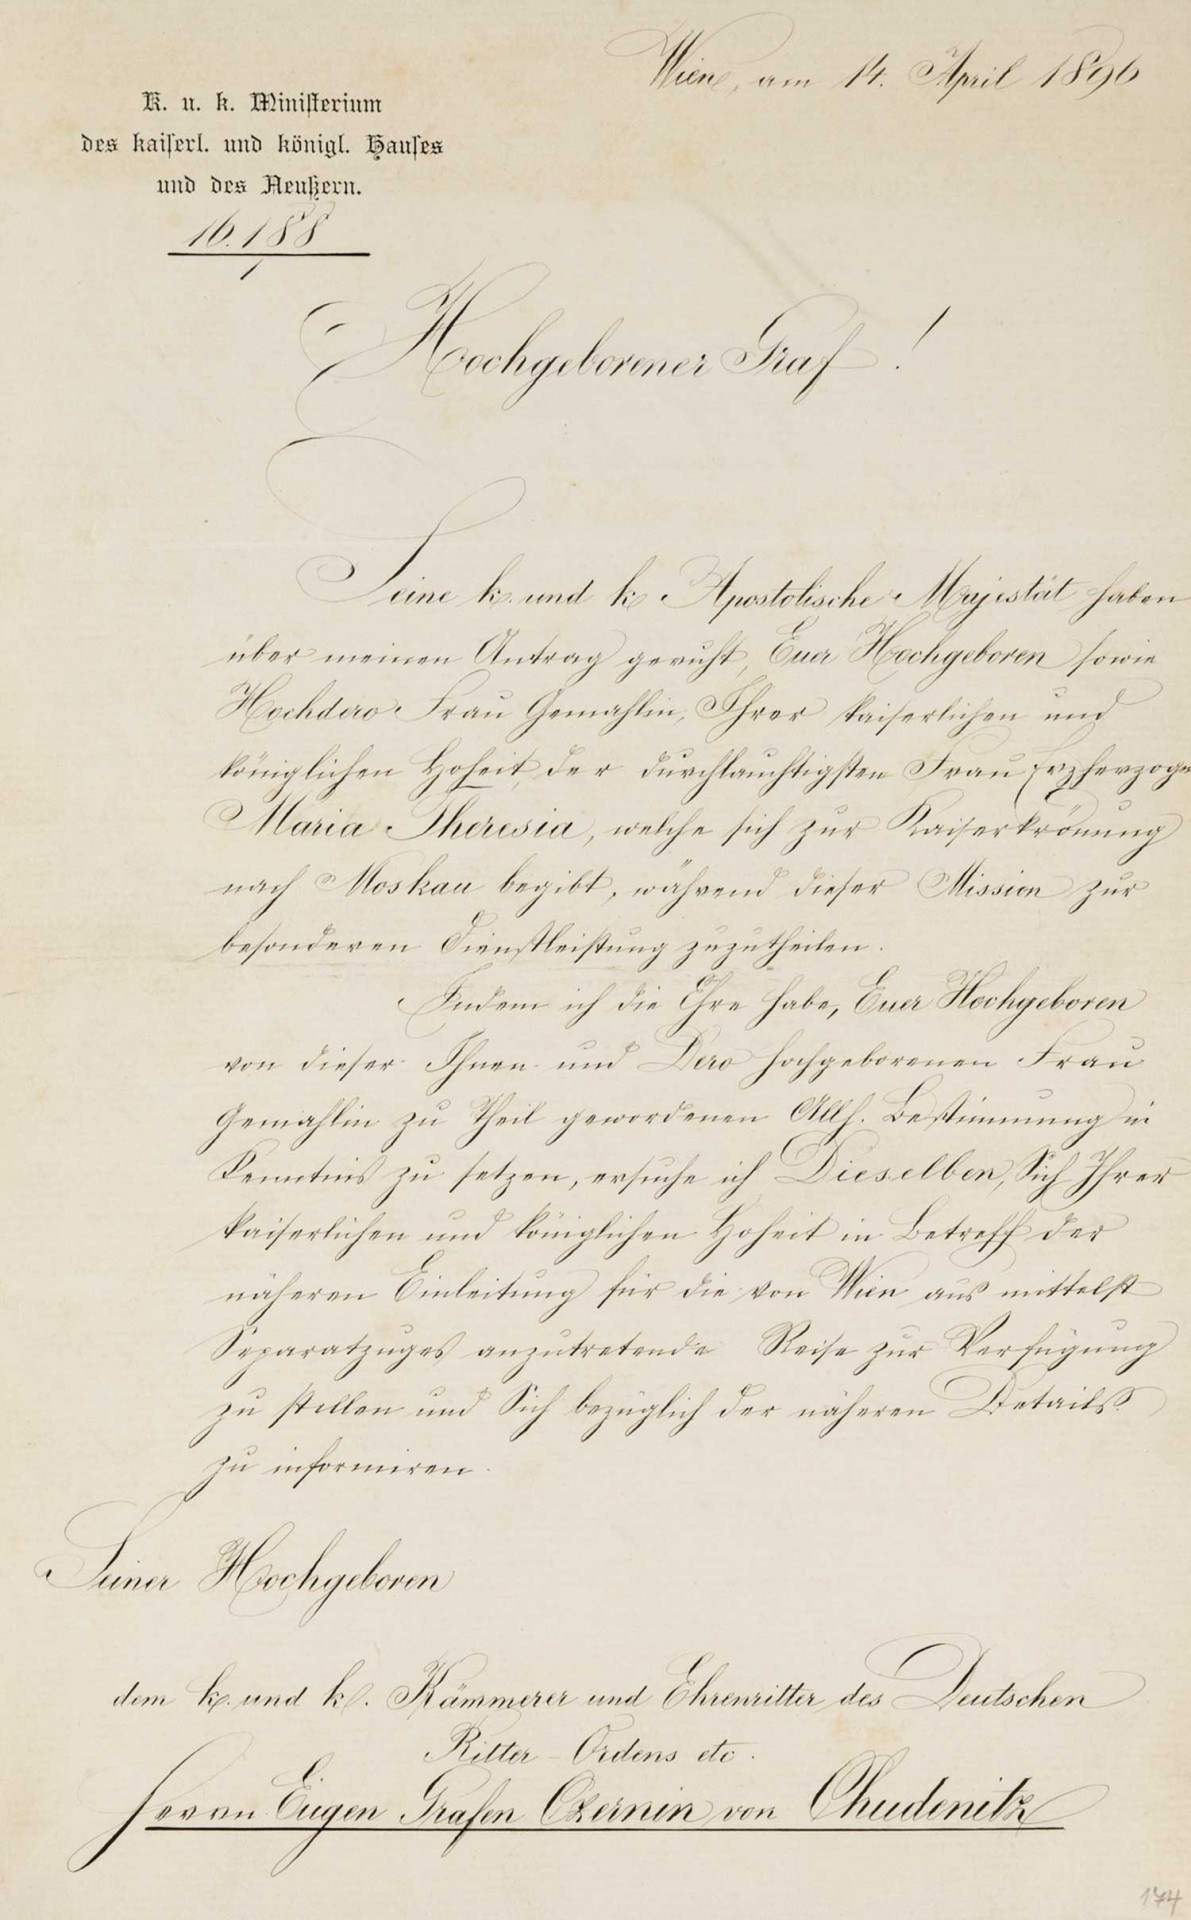 Wien, am 14. April 1896
K. u. k. Ministerium
des kaiserl. und königl. Hauses
und des Aeußern.
16.188
1
Hochgeborener Graf!
Seine k. und k. Apostolische Majestät haben
über meinen Antrag geruht, Euer Hochgeboren sowie
Hochdero Frau Gemahlin, Ihrer kaiserlichen und
königlichen Hoheit, der durchlauchtigsten Frau Erzherzogin
Maria Theresia, welche sich zur Kaiserkrönung
nach Moskau begibt, während dieser Mission zur
besonderen Dienstleistung zuzutheilen.
Indem ich die Ehre habe, Euer Hochgeboren
von dieser Ihnen und Dero hochgeborenen Frau
Gemahlin zu Theil gewordenen Allh. Bestimmung in
Kenntnis zu setzen, ersuche ich Dieselben, Sich Ihrer
kaiserlichen und königlichen Hoheit in Betreff der
näheren Einleitung für die von Wien aus mittelst
Separatzuges anzutretende Reise zur Verfügung
zu stellen und Sich bezüglich der näheren Details
zu informiren.
Seiner Hochgeboren
dem k. und k. Kämmerer und Ehrenritter des Deutschen
Ritter-Ordens etc.
Herrn Eugen Grafen Czernin von Chudenitz
174